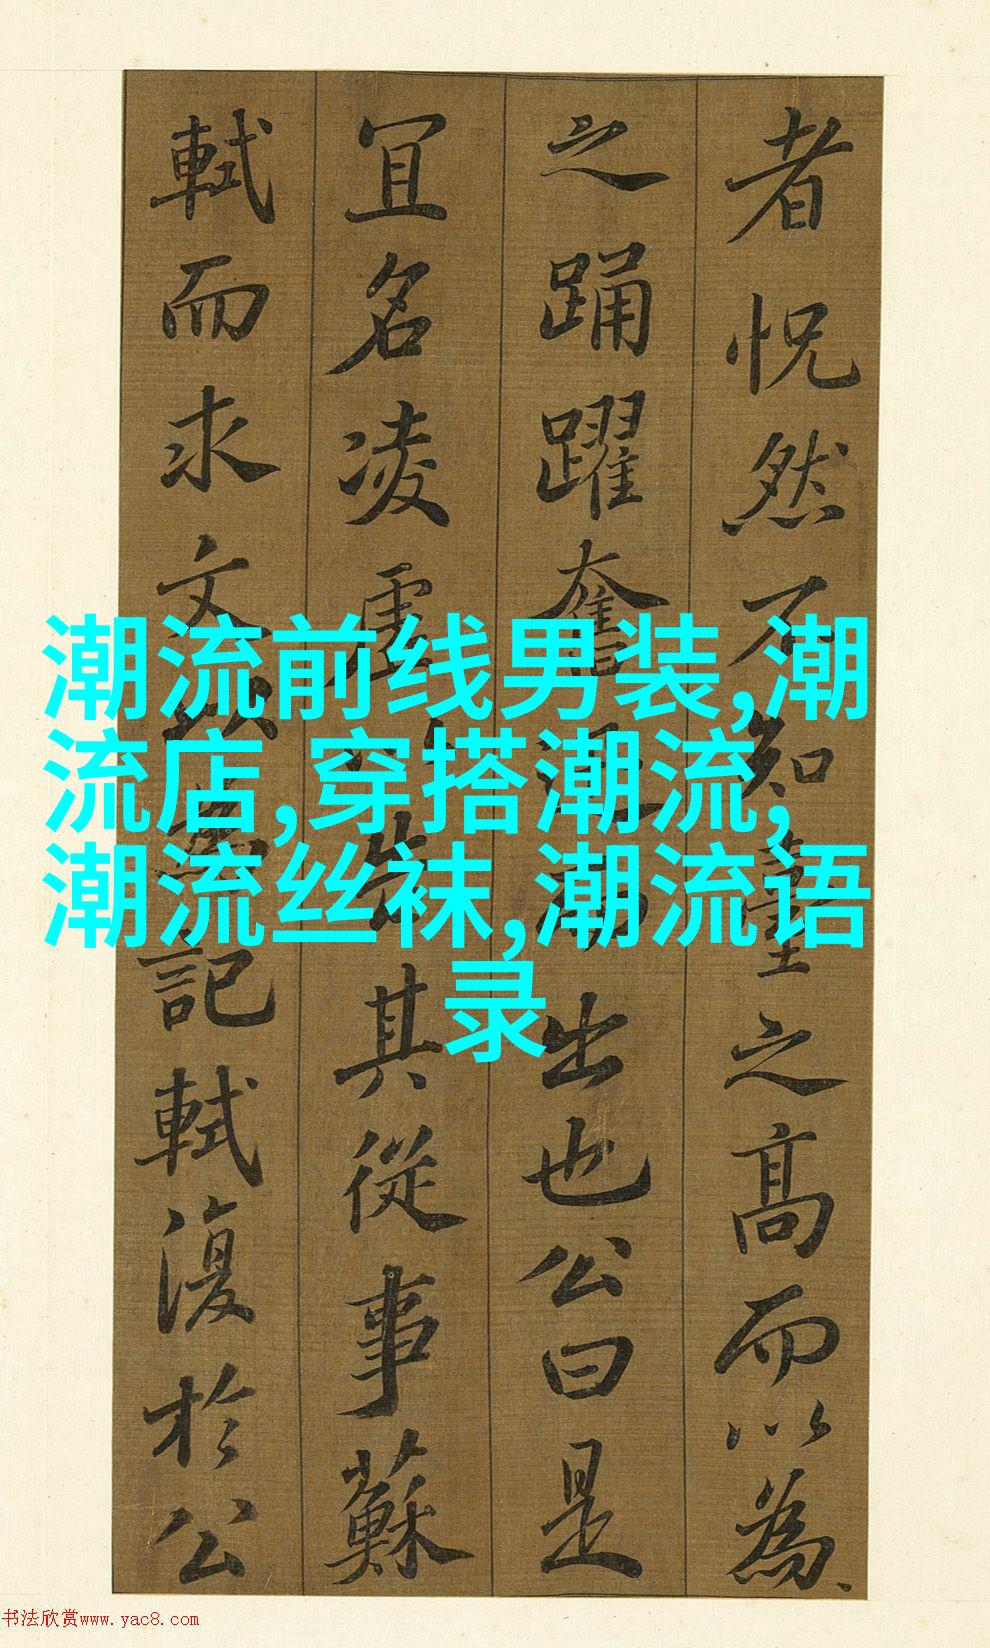 者怳然不知臺之髙而以為
之踊躍奮迅而出也公曰是
冝名凌虛以告其從事蘇
軾而求文以為記軾復於公
潮流前线男装,潮
流店,穿搭潮流,
潮流丝袜,潮流语
录
书法欣赏www.yac8.com